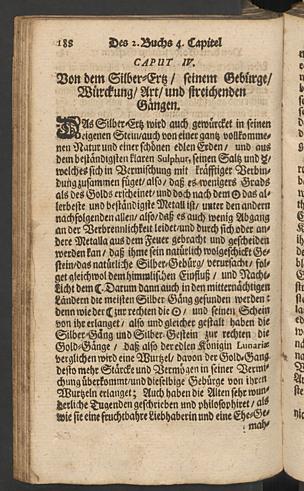 188 Des 2. Buchs 4. Capitel
CAPUT IV.
Von dem Silber-Ertz / seinem Gebürge/
Würckung/ Art/ und streichenden
Gängen.
DAs Silber-Ertz wird auch gewürcket in seinen
eigenen Stein/ auch von einer gantz vollkomme-
nen Natur und einer schönen edlen Erden / und aus
dem beständigsten klaren Sulphur, seinen Saltz und ☿/
welches sich in Vermischung mit kräfftiger Verbin-
dung zusammen füget/ also/ daß es wenigers Grads
als des Golds erscheinet/ und doch nach dem ☉ das al-
lerbeste und beständigste Metall ist/ unter den andern
nachfolgenden allen/ also/ daß es auch wenig Abgang
an der Verbrennlichkeit leidet/ und durch sich oder an-
dere Metalla aus dem Feuer gebracht und gescheiden
werden kan/ daß ihme sein natürlich wolgeschickt Ge-
stein/ das natürliche Silber-Gebürg/ verursacht/ fol-
get gleichwol dem himmlischen Einfluß / und Nach-
Licht dem ☾. Darum dann auch in den mitternächtigen
Ländern die meisten Silber Gäng gefunden werden:
denn wie der ☾ zur rechten die ☉/ und seinen Schein
von ihr erlanget/ also und gleicher gestalt haben die
Silber-Gäng und Silber-Gestein zur rechten die
Gold-Gänge / daß also der edlen Königin Lunariæ
verglichen wird eine Wurtzel/ davon der Gold-Gang
desto mehr Stärcke und Vermögen in seiner Vermi-
schung überkommt/ und dieselbige Gebürge von ihren
Wurtzeln erlanget; Auch haben die Alten sehr wun-
derliche Tugenden geschrieben und philosophiret/ als
wie sie eine fruchtbahre Liebhaberin und eine Ehe-Ge-
mah-